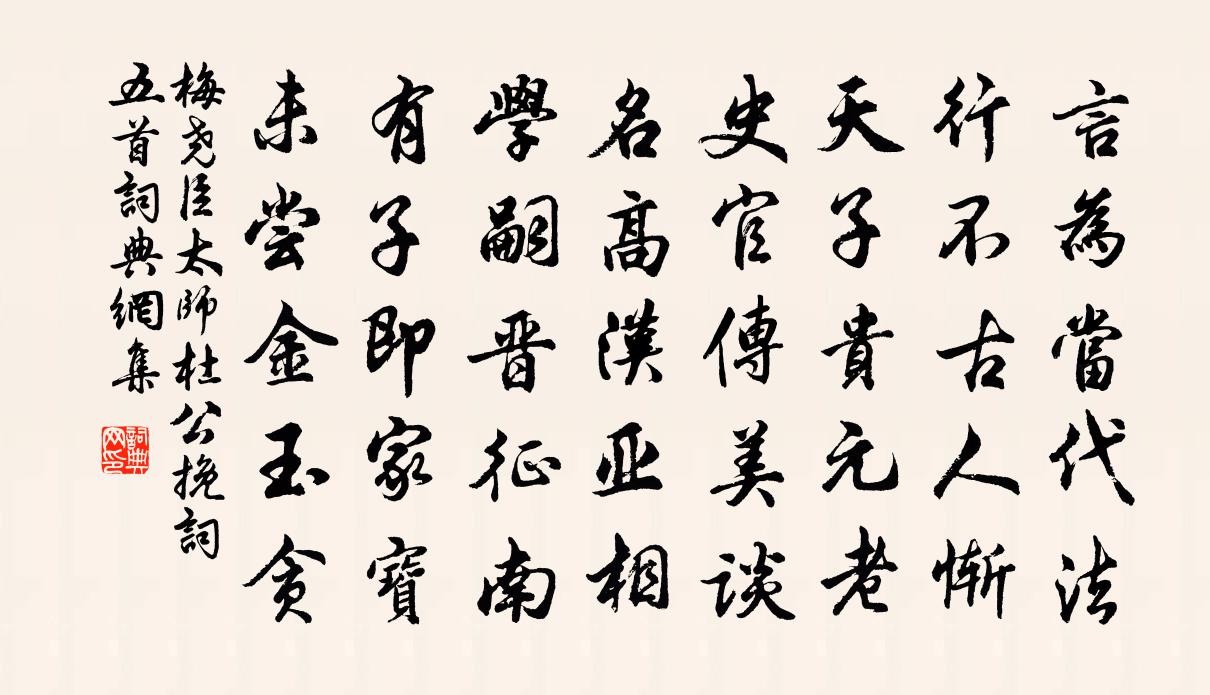 言為當代法
行不古人慚
天子貴元老
史官傳美談
名高漢亚相
學嗣晋征南
有子即家寶
未尝金玉貪
梅尧臣太師杜公挽詞
五首詞典網集
詞典
网印